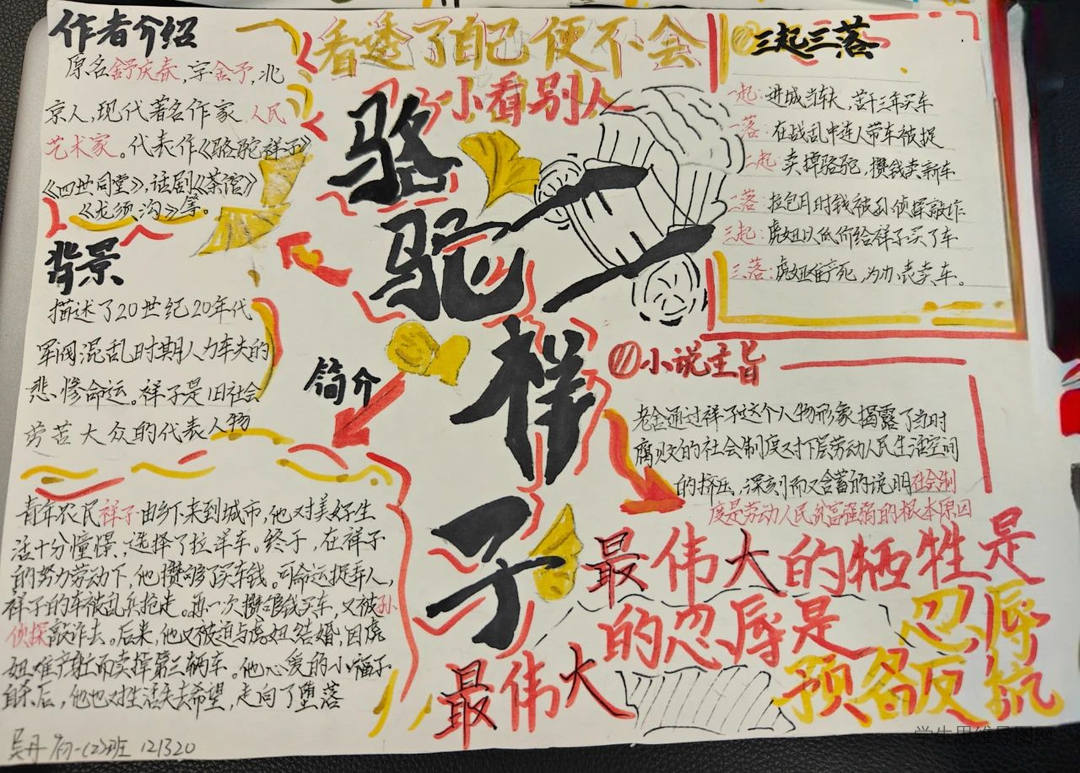 作者介绍
原名舒庆春,字舍予,北
京人,现代著名作家 人民
艺术家。代表作《骆驼祥子》
《四世同堂》,话剧《茶馆》
《龙须沟》等。
背景
描述了20世纪20年代
军阀混乱时期人力车夫的
悲惨命运。祥子是旧社会
劳苦大众的代表人物
看透了自己便不会
小看别人
骆
驼
祥
子
三起三落
一起:进城当车夫,苦干三年买车
一落:在战乱中连人带车被捉
二起:卖掉骆驼,攒钱卖新车
二落:拉包月时钱被孙侦探敲诈
三起:虎妞以低价给祥子买了车
三落:虎妞难产死,为办丧卖车。
小说主旨
老舍通过祥子这个人物形象揭露了当时
腐败的社会制度对下层劳动人民生活空间
的挤压,深刻而又含蓄的说明社会制
度是劳动人民贫富强弱的根本原因
简介
青年农民祥子由乡下来到城市,他对美好生
活十分憧憬,选择了拉洋车。终于,在祥子
的努力劳动下,他攒够了买车钱。可命运捉弄人,
祥子的车被乱兵抢走。再一次攒钱买车,又被孙
侦探敲诈去。后来,他又被迫与虎妞结婚,因虎
妞难产死而卖掉第三辆车。他心爱的小福子
自杀后,他也对生活失去希望,走向了堕落
最伟大的牺牲是忍辱
最伟大的忍辱是预备反抗
吴丹 初一(2)班 121320